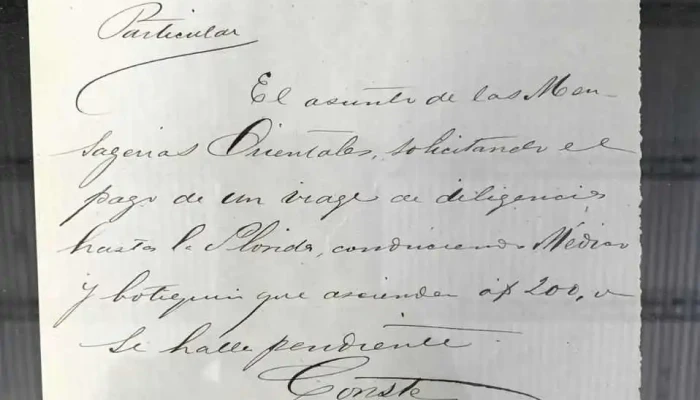 Particular
El asunto de las Men-
sagerias Orientales, solicitando el
pago de un viage de diligencia
hasta la Florida, conduciendo Médico
y botiquin que asciende á $ 200,
se halla pendiente
Conste